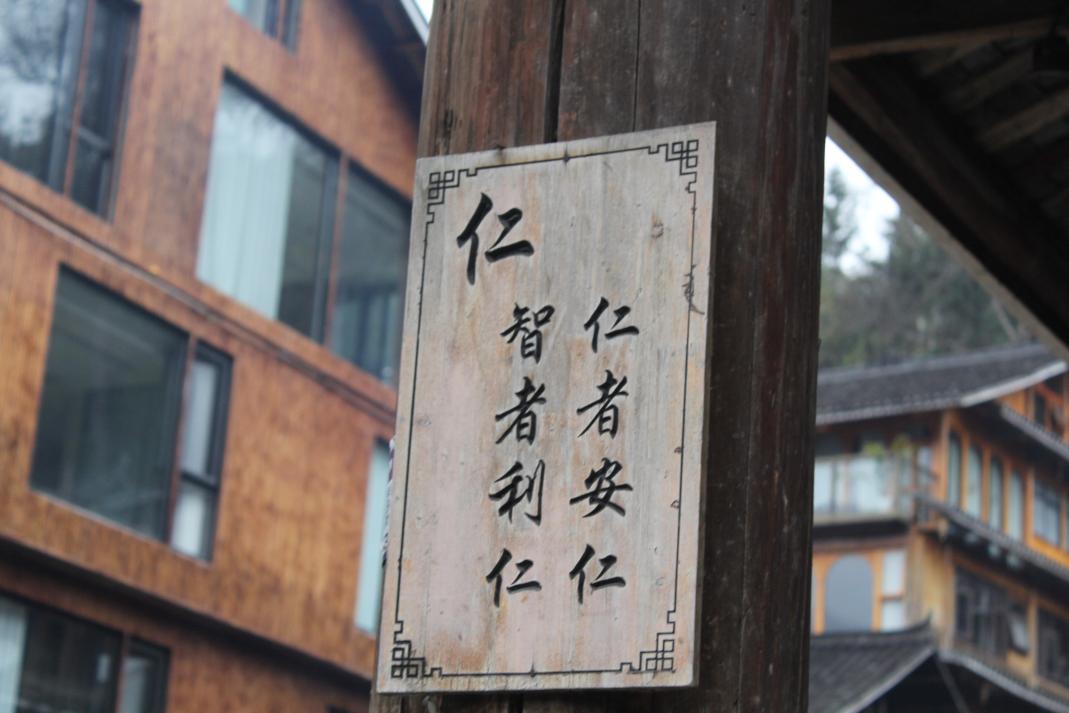 仁
仁者安仁
智者利仁